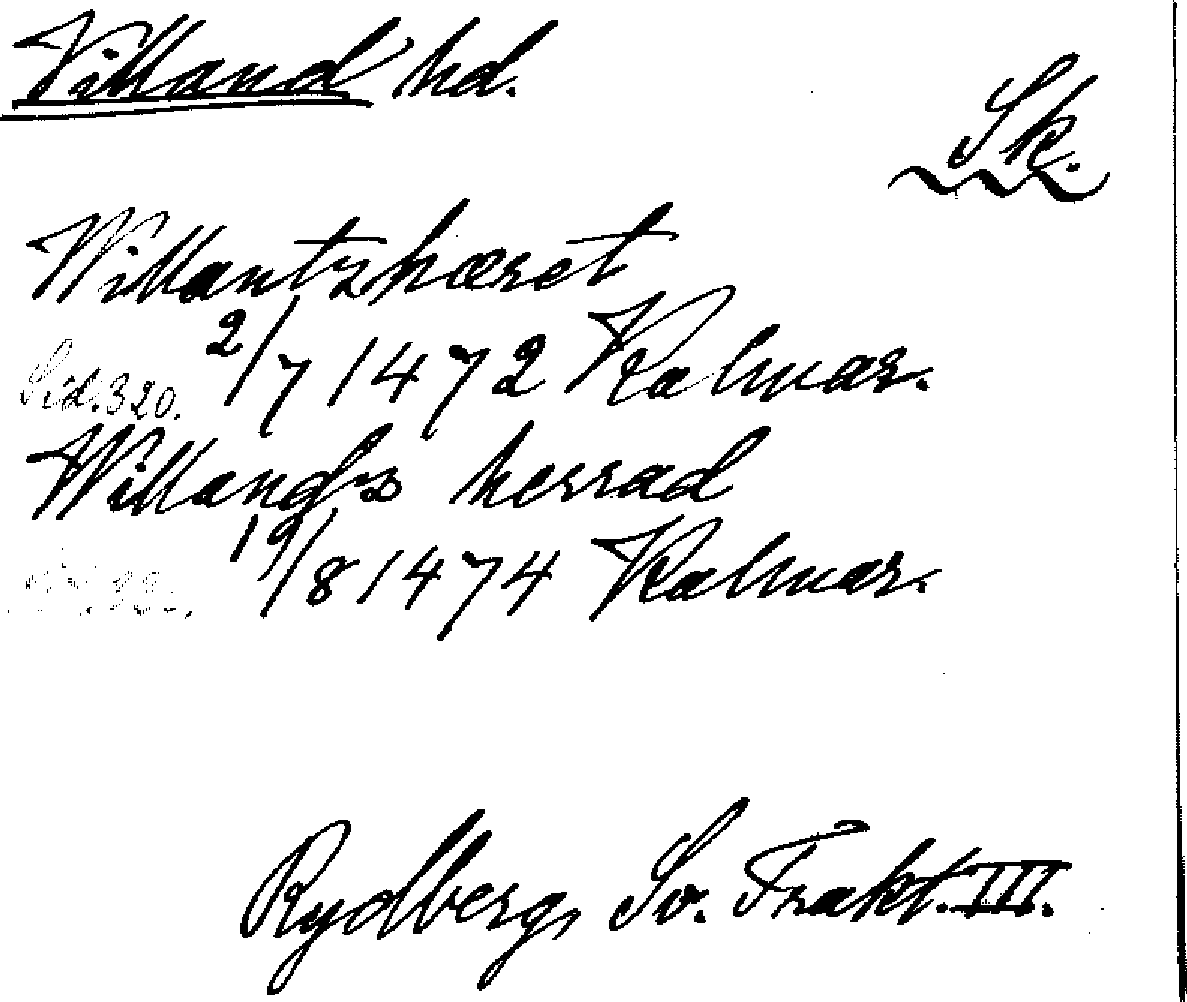 Villand hd.
Sk.
Willantzhæret
Sid. 320. 2/7 1472 Kalmar.
Willandz herrad
19/8 1474 Kalmar.
Rydberg, Sv. Trakt. III.